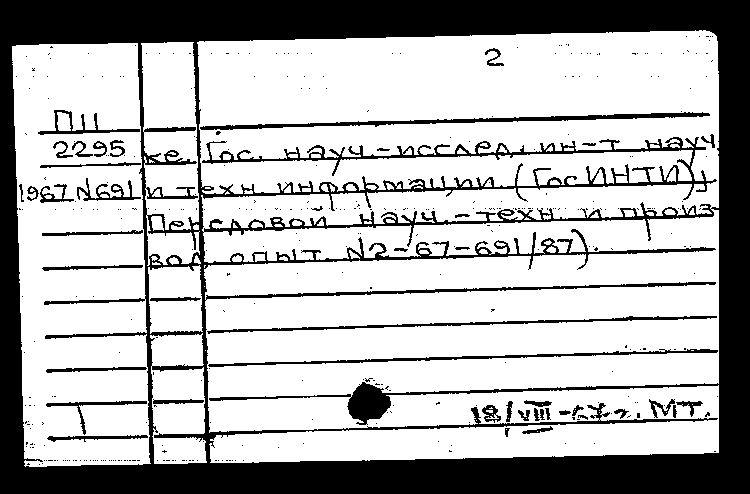 2
П11
2295 ке. Гос. науч.-исслед. ин-т науч.
1967 N691 и техн. информации (ГосИНТИ);
Передовой науч.-техн. и произ-
вод. опыт. N2-67-691/87).
18/VIII-67г. МТ.